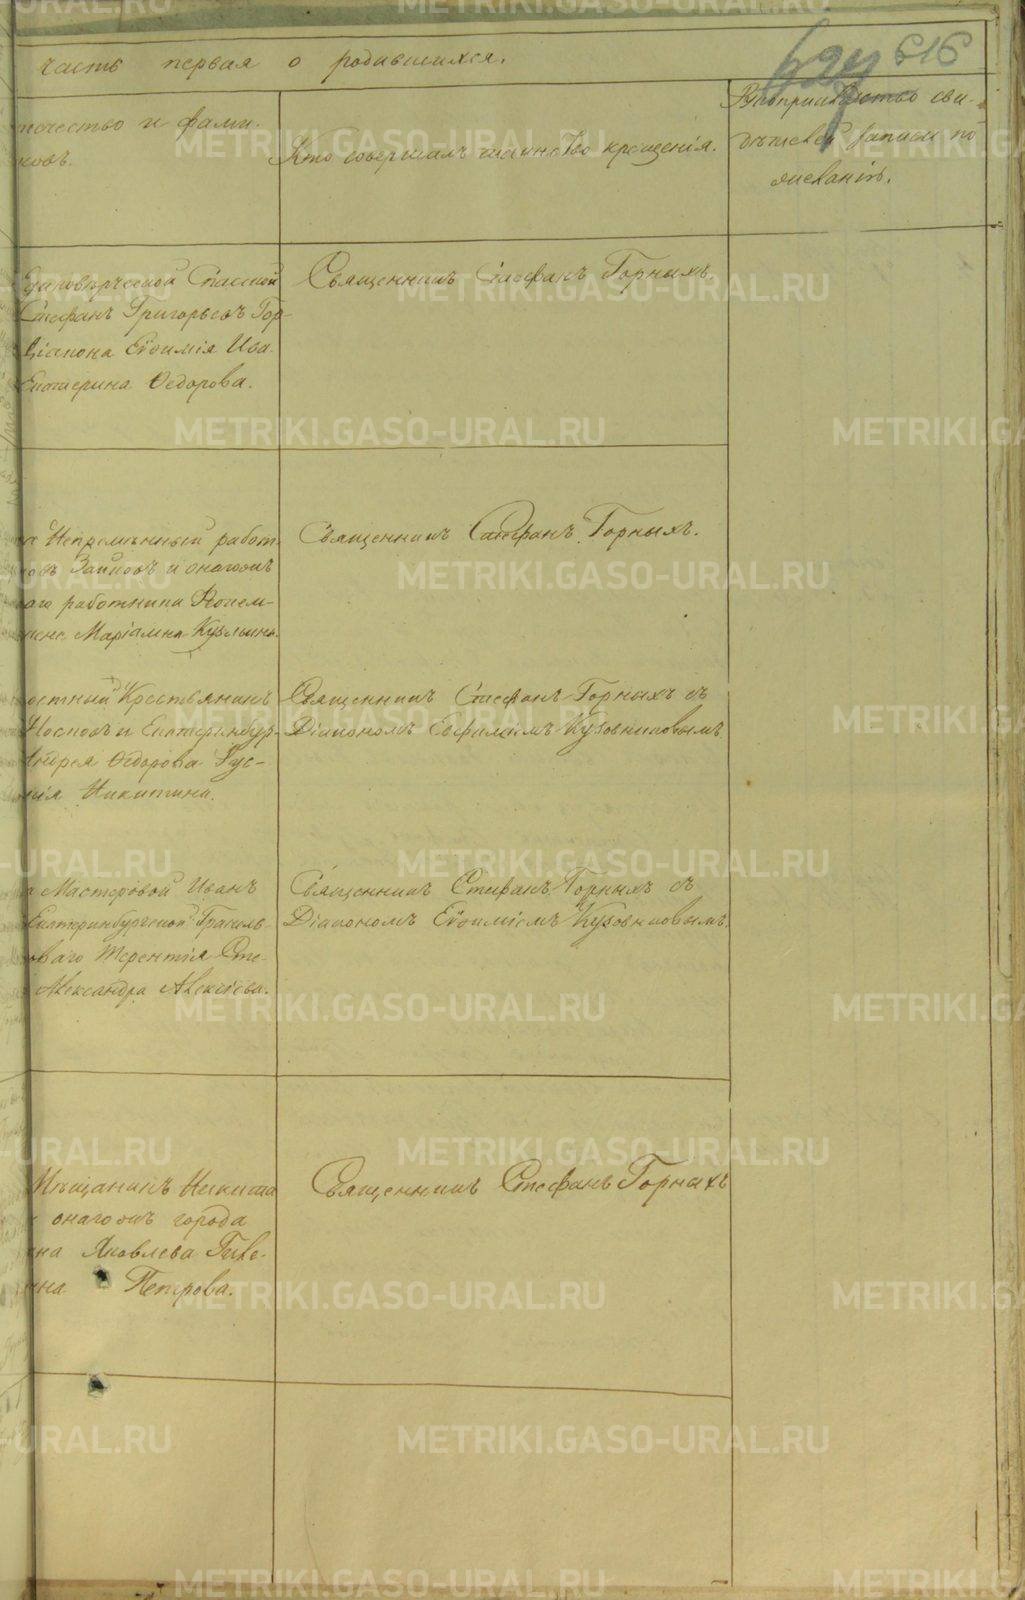 629 616
часть первая о родившихся.
отчество и фами-
ковъ.
Кто совершалъ таинство крещенія.
сви-
дѣтелей записи по
желанію.
Единовѣрческой Спасской
Стефанъ Григорьевъ Гор-
Діакона Евѳимія Ива-
Екатерина Ѳедорова.
Священникъ Стефанъ Горныхъ.
Непремѣнный работ-
и онагожъ
аго работника
Маріамна Кузьмина.
Священникъ Стефанъ Горныхъ.
Крестьянинъ
Носковъ и Екатеринбур-
Андрея Ѳедорова Гус-
нія Никитина.
Священникъ Стефанъ Горныхъ съ
Діакономъ Евфиміемъ Кузовниковымъ
Мастеровой Иванъ
Екатеринбургской Граниль-
оваго Терентія Сте-
Александра Алексіева.
Священникъ Стефанъ Горныхъ съ
Діакономъ Евѳиміемъ Кузовниковымъ.
Мѣщанинъ Никита
онагожъ города
на Яковлева
Петрова.
Священникъ Стефанъ Горныхъ
METRIKI.GASO-URAL.RU